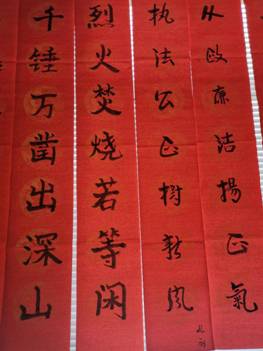 从政廉洁揚正氣
执法公正樹新風
烈火焚烧若等闲
千锤万凿出深山